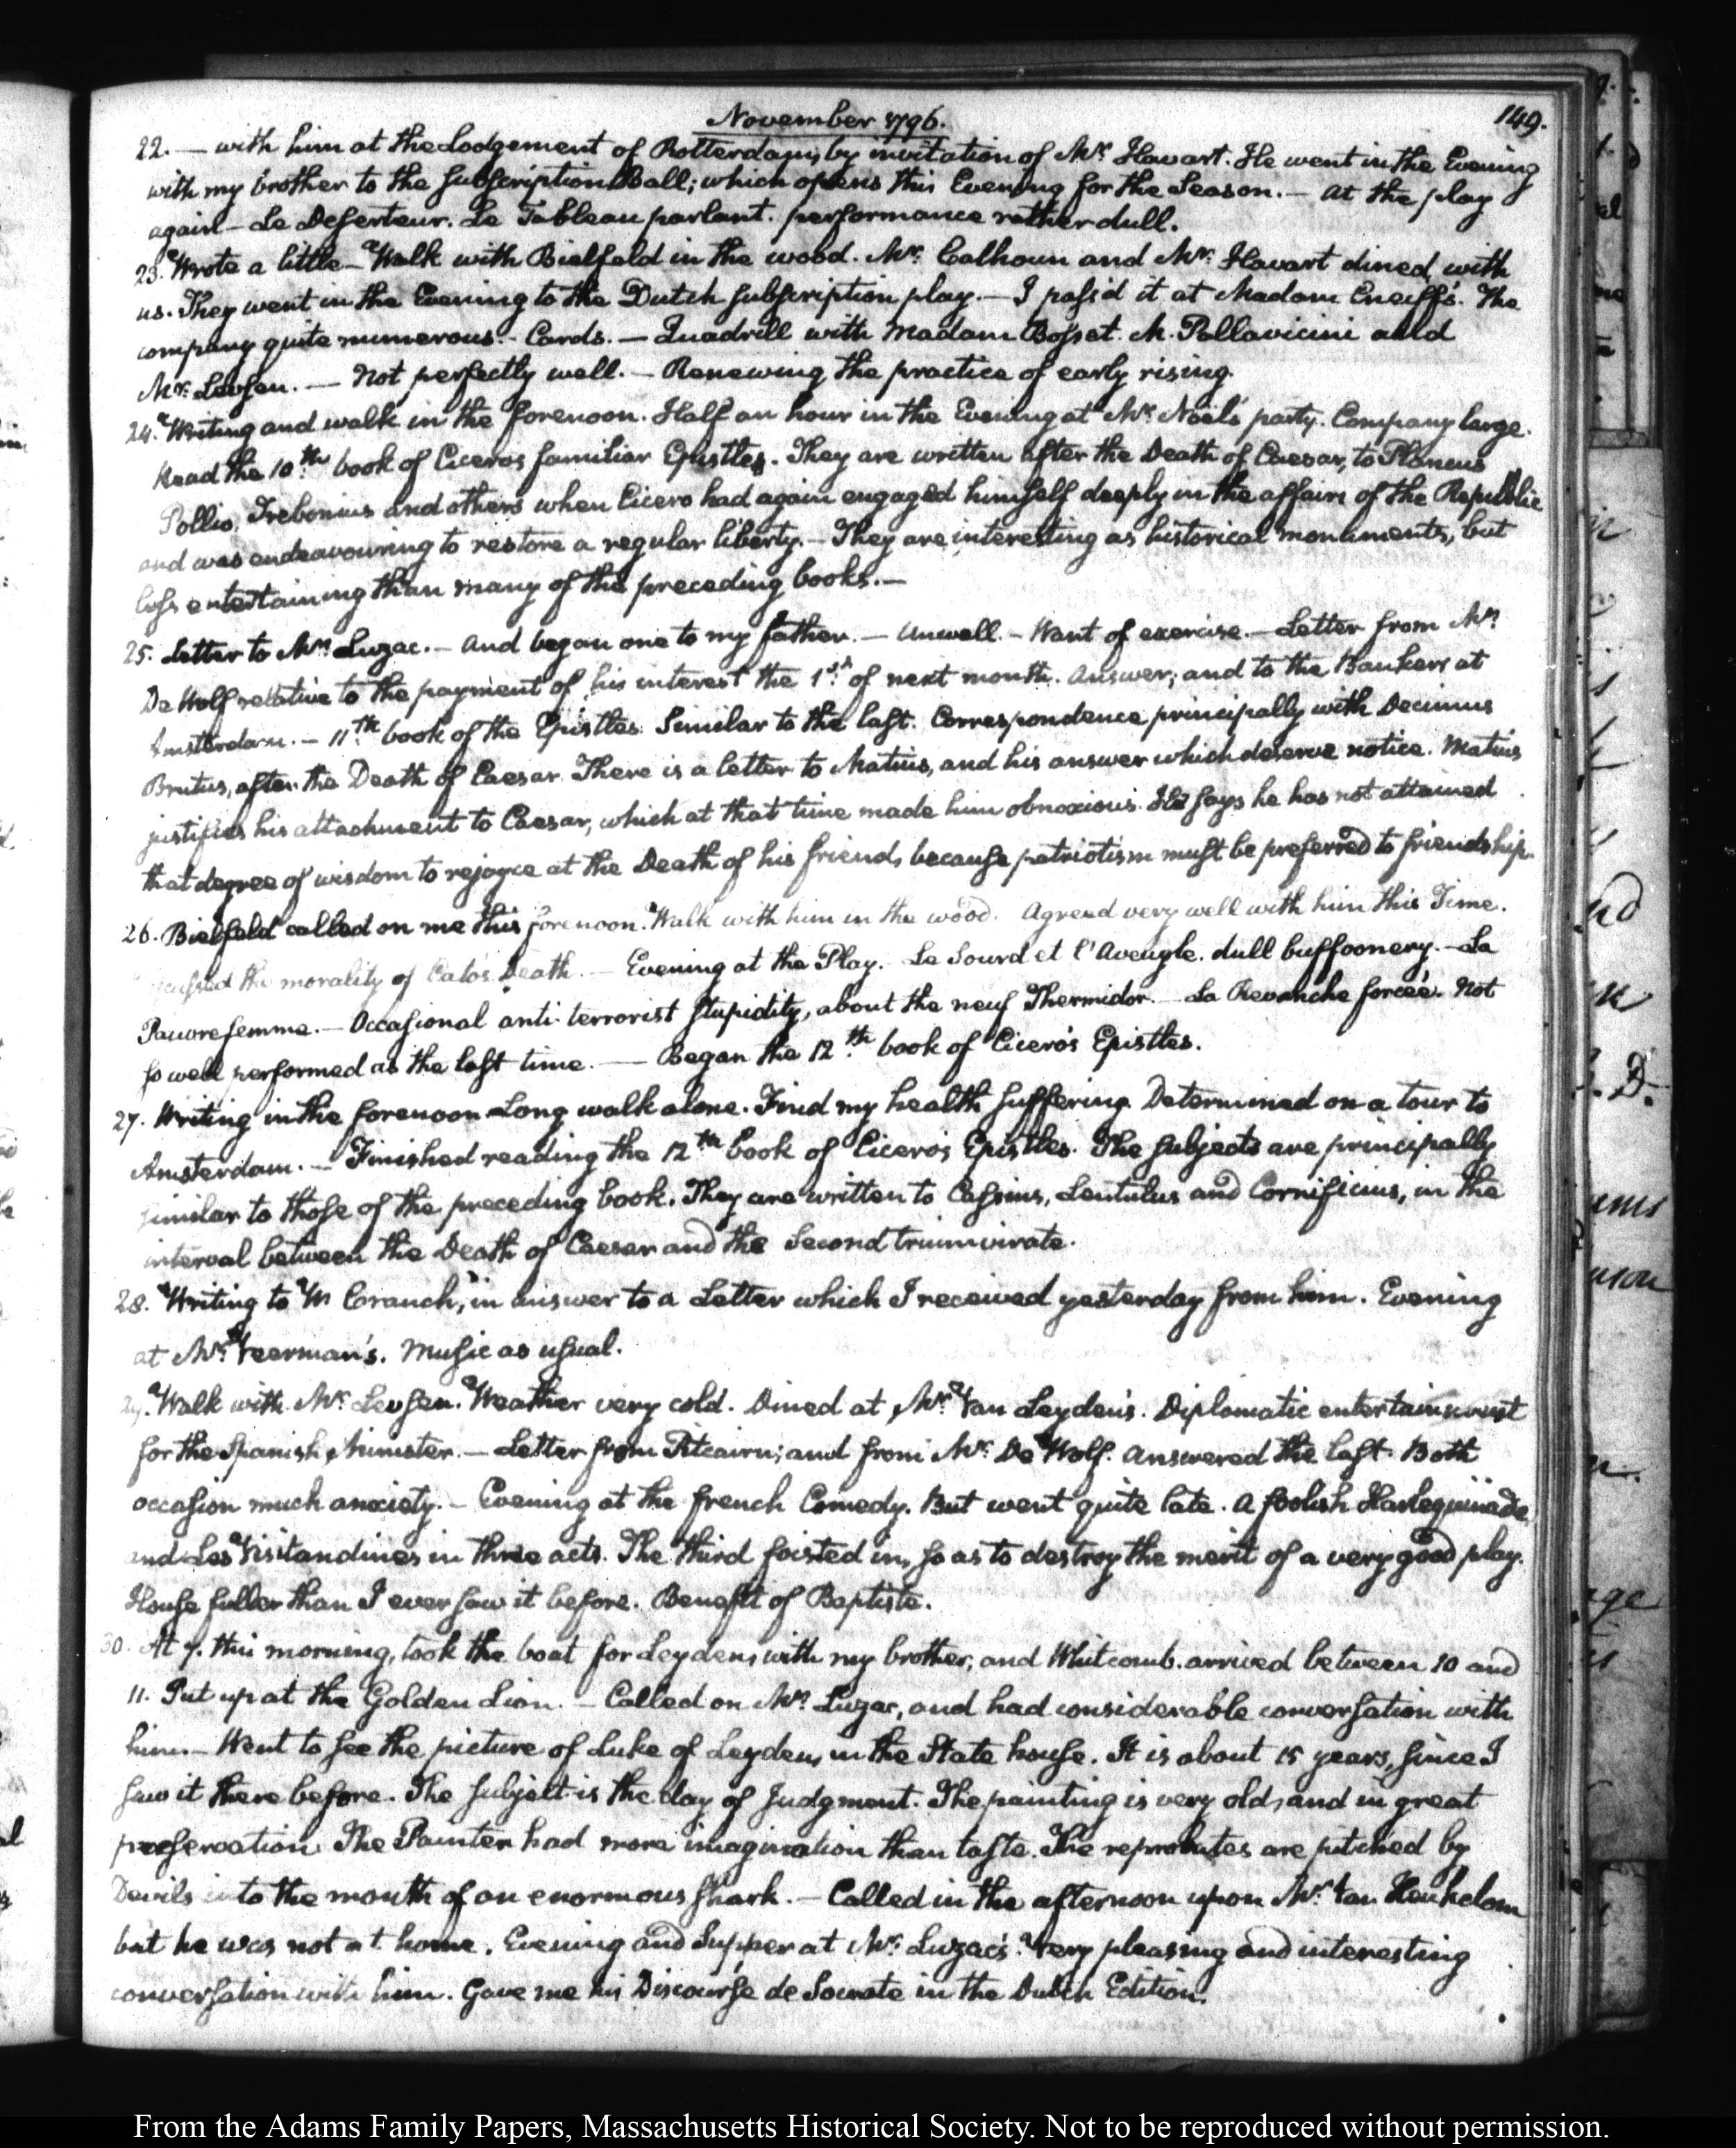 149.
November 1796.
22. — with him at the Lodgement of Rotterdam, by invitation of Mr. Havart. He went in the Evening
with my brother to the subscription Ball; which opens this Evening for the Season. — At the play
again — Le Deserteur. Le Tableau parlant. performance rather dull.
23. Wrote a little — Walk with Bielfeld in the wood. Mr. Calhoun and Mr. Havart dined with
us. They went in the Evening to the Dutch subscription play. — I pass'd it at Madam Cneiff's. The
company quite numerous. — Cards. — Quadrill with Madam Bosset. M. Pallavicini and
Mr. Levsen. — Not perfectly well. — Renewing the practice of early rising.
24. Writing and walk in the forenoon. Half an hour in the Evening at Mr. Noël's party. Company large.
Read the 10th. book of Cicero's familiar Epistles. They are written after the Death of Caesar, to Plancus
Pollio, Trebonius and others when Cicero had again engaged himself deeply in the affairs of the Republic
and was endeavouring to restore a regular liberty. — They are interesting as historical monuments, but
less entertaining than many of the preceding books. —
25. Letter to Mr. Luzac. — And began one to my father. — Unwell. — Want of exercise. — Letter from Mr.
De Wolf relative to the payment of his interest the 1st. of next month. Answer; and to the Bankers at
Amsterdam. — 11th. book of the Epistles. Similar to the last. Correspondence principally with Decimus
Brutus, after the Death of Caesar. There is a letter to Matius, and his answer which deserve notice. Matius
justifies his attachment to Caesar, which at that time made him obnoxious. He says he has not attained
that degree of wisdom to rejoyce at the Death of his friend, because patriotism must be preferred to friendship.
26. Bielfeld called on me this forenoon. Walk with him in the wood. Agreed very well with him this Time.
the morality of Cato's Death. — Evening at the Play. Le Sourd et l'Aveugle. dull buffoonery. — La
Pauvre femme. — Occasional anti-terrorist stupidity, about the neuf Thermidor. — La Revanche forcée. Not
so well performed as the last time. — Began the 12th. book of Cicero's Epistles.
27. Writing in the forenoon Long walk alone. Find my health suffering. Determined on a tour to
Amsterdam. — Finished reading the 12th book of Cicero's Epistles. The subjects are principally
similar to those of the preceding book. They are written to Cassius, Lentulus and Cornificius, in the
interval between the Death of Caesar and the Second triumvirate.
28. Writing to W Cranch, in answer to a Letter which I received yesterday from him. Evening
at Mr. Veerman's. Music as usual.
29. Walk with Mr. Levsen. Weather very cold. Dined at Mr. Van Leyden's. Diplomatic entertainment
for the Spanish Minister. — Letter from Pitcairn; and from Mr. De Wolf. Answered the last. Both
occasion much anxiety. — Evening at the french Comedy. But went quite late. A foolish Harlequinade
and Les Visitandines in three acts. The third foisted in, so as to destroy the merit of a very good play.
House fuller than I ever saw it before. Benefit of Baptiste.
30. At 7. this morning, took the boat for Leyden, with my brother, and Whitcomb. arrived between 10 and
11. Put up at the Golden Lion. — Called on Mr. Luzac, and had considerable conversation with
him. — Went to see the picture of Luke of Leyden, in the State house. It is about 15 years, since I
saw it there before. The subject is the day of Judgment. The painting is very old, and in great
preservation. The Painter had more imagination than taste. The reprobates are pitched by
Devils into the mouth of an enormous shark. — Called in the afternoon upon Mr. Van Heukelom
but he was not at home. Evening and Supper at Mr. Luzac's. Very pleasing and interesting
conversation with him. Gave me his Discourse de Socrate in the Dutch Edition.
From the Adams Family Papers, Massachusetts Historical Society. Not to be reproduced without permission.